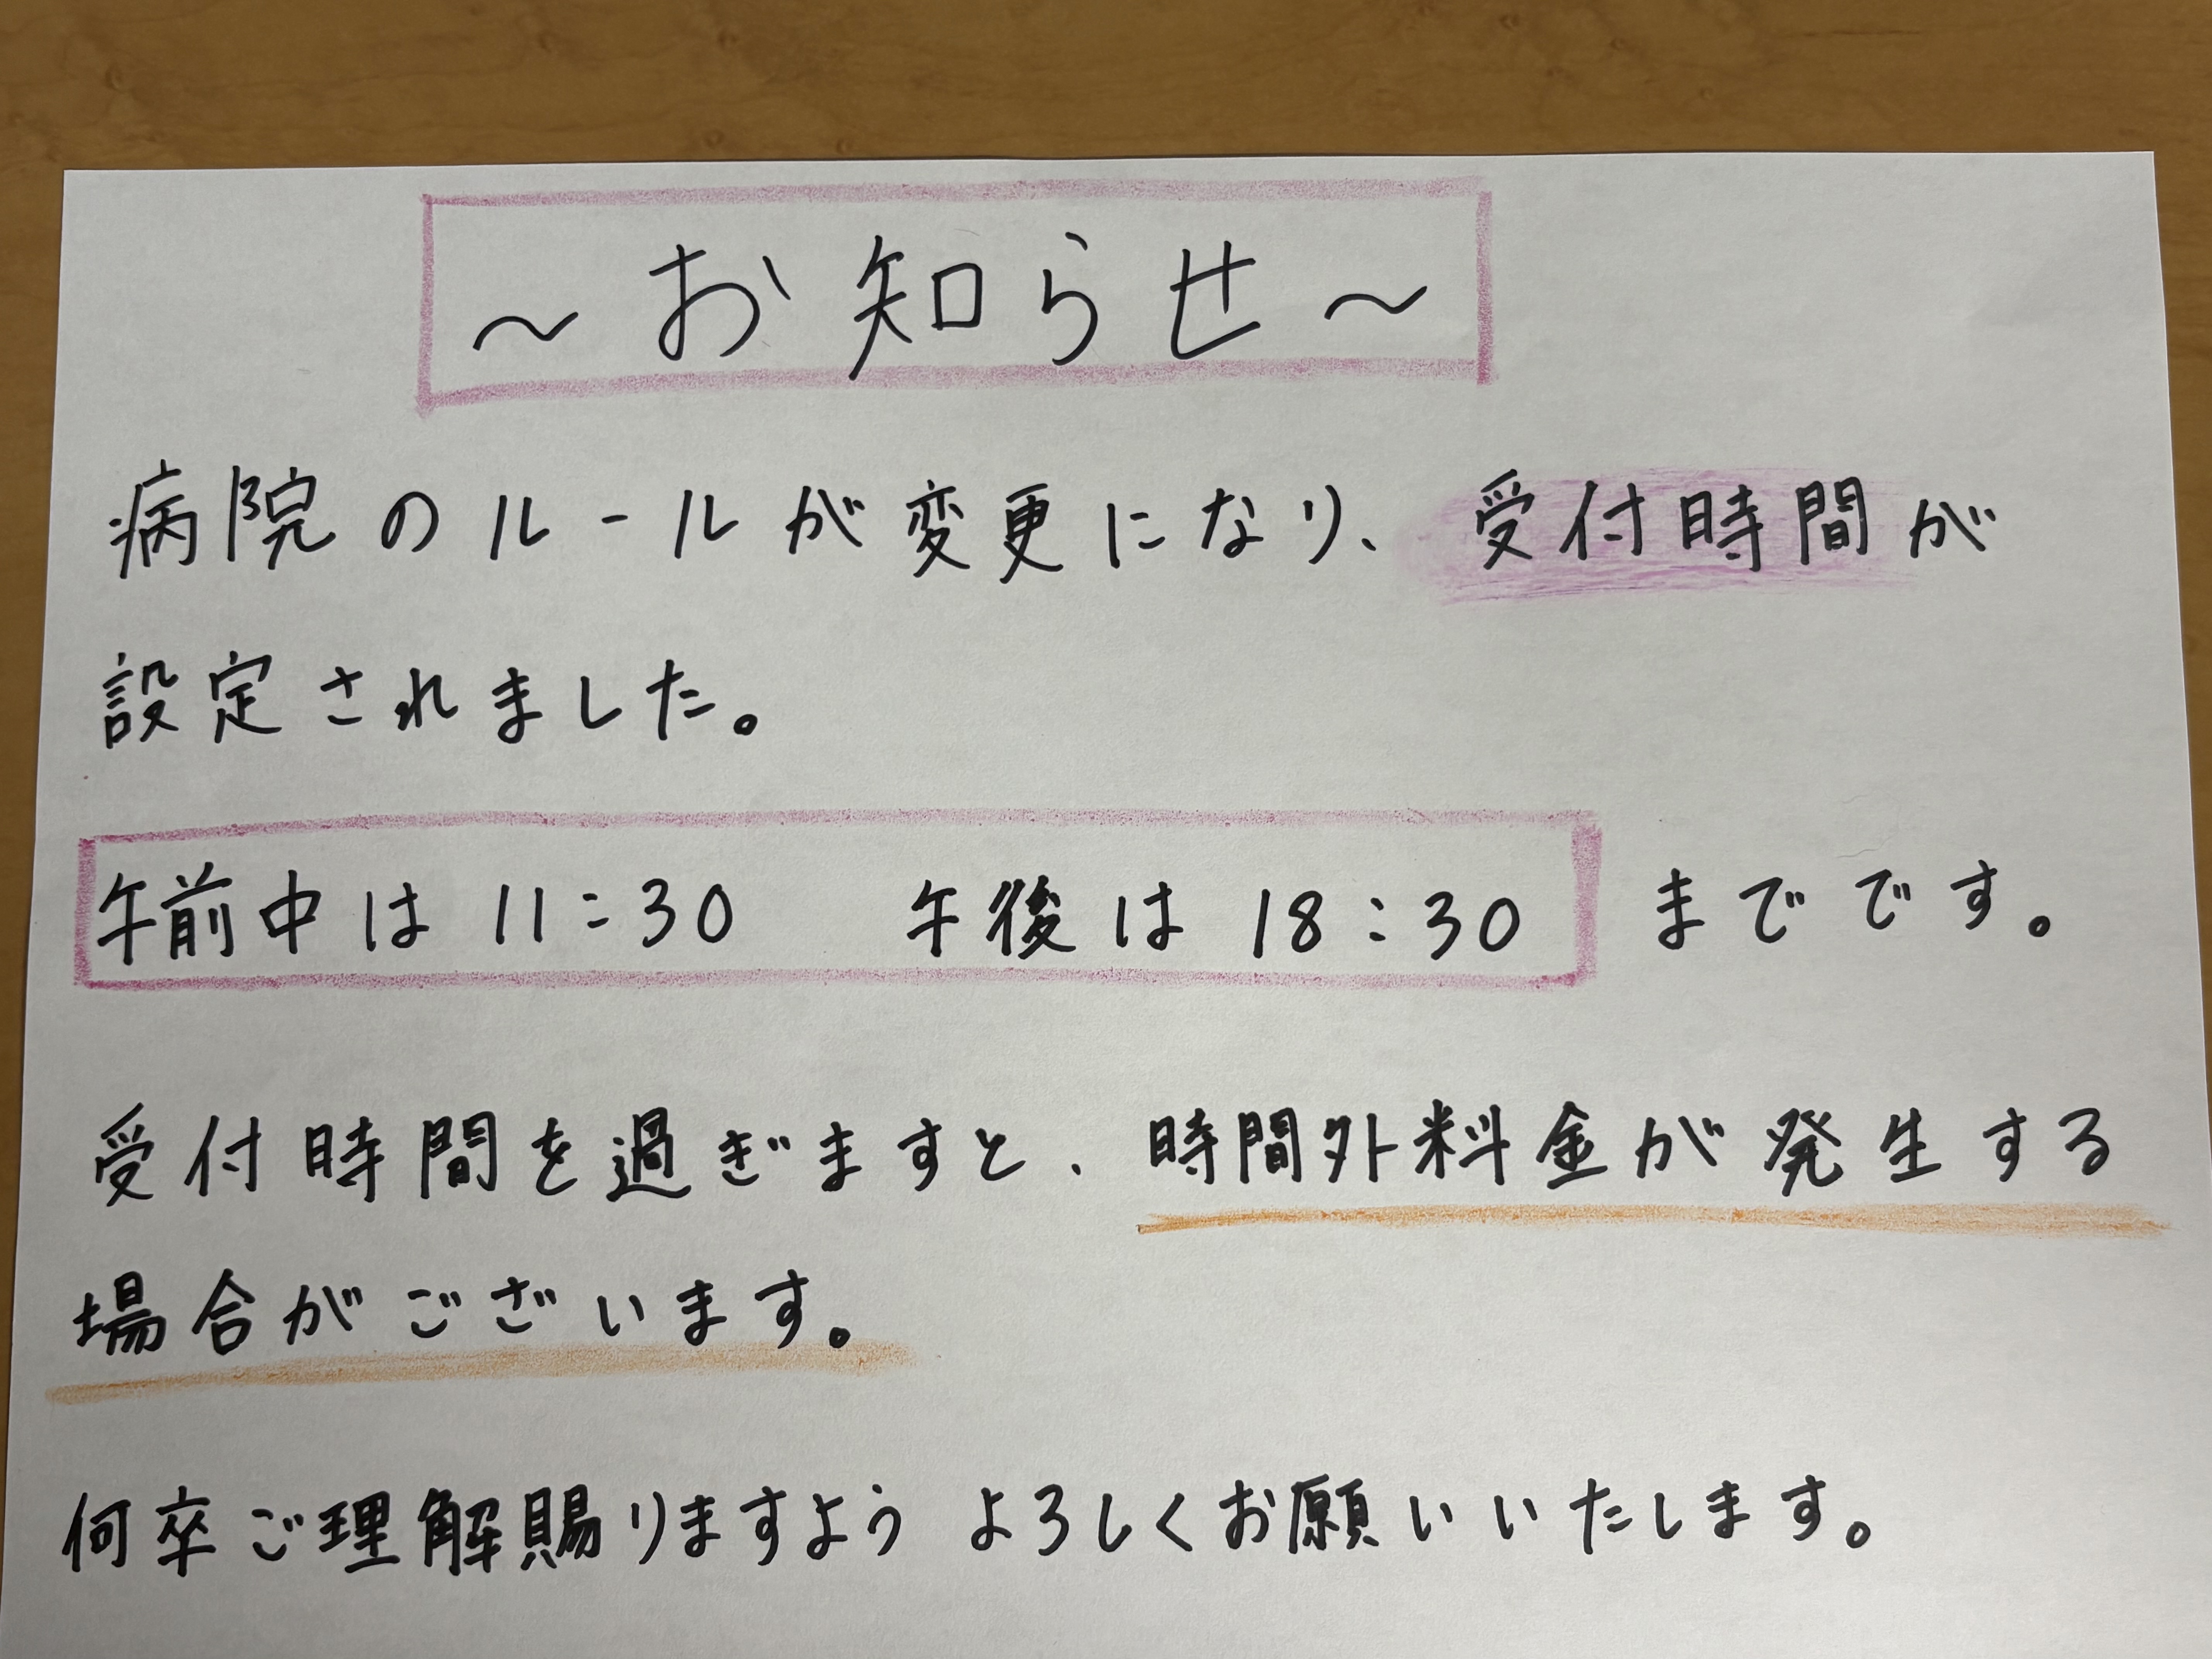 ～お知らせ～
病院のルールが変更になり、受付時間が
設定されました。
午前中は 11:30　午後は 18:30 までです。
受付時間を過ぎますと、時間外料金が発生する
場合がございます。
何卒ご理解賜りますよう よろしくお願いいたします。